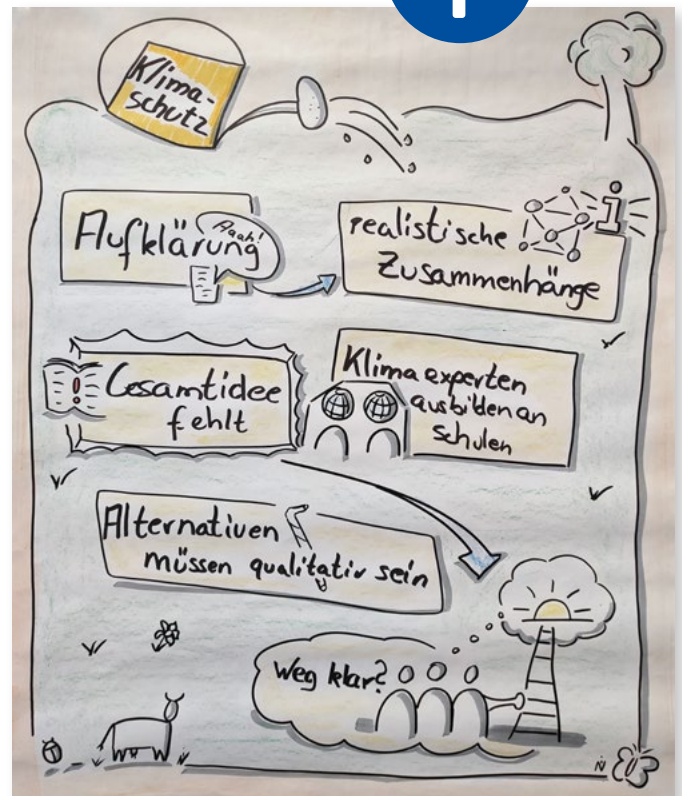 Klima-
schutz
Aufklärung
Aaah!
realistische
Zusammenhänge
i
!
Gesamtidee
fehlt
Klimaexperten
ausbilden an
Schulen
Alternativen
müssen qualitativ sein
Weg klar?